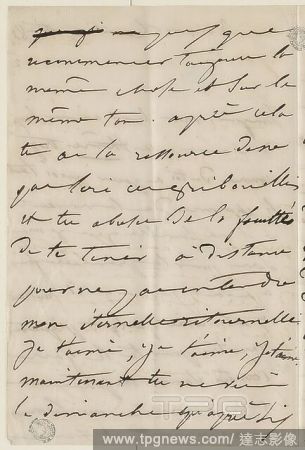 ne peux que
recommencer toujours la
même chose et sur le
même ton. après cela
tu as la ressource de ne
pas lire ce gribouillis
et tu abuses de la facultés
de te tenir à distance
pour ne pas entendre
mon éternelle ritournelle
je t'aime, je t'aime, je t'aime
maintenant tu ne
le dimanche qu'après
TPG
www.tpgnews.com / 達志影像